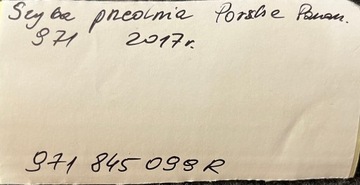 Szyba przednia Porshe Panam.
971 2017r.
971 845 099 R